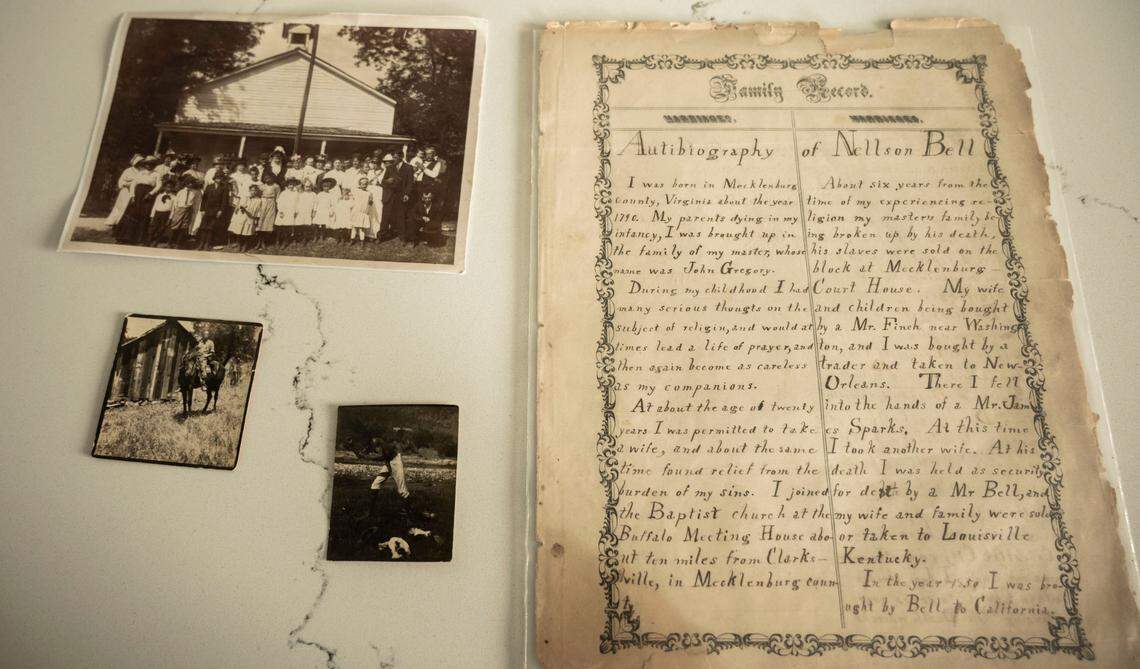 Family Record.
MARRIAGES. MARRIAGES.
Autibiography of Nellson Bell
I was born in Mecklenburg
County, Virginia about the year
1790. My parents dying in my
infancy, I was brought up in
the family of my master, whose
name was John Gregory.
During my childhood I had
many serious thougts on the
subject of religin, and would at
times lead a life of prayer, and
then again become as careless
as my companions.
At about the age of twenty
years I was permitted to take
a wife, and about the same
time found relief from the
burden of my sins. I joined
the Baptist church at the
Buffalo Meeting House abo-
ut ten miles from Clarks-
ville, in Mecklenburg coun-
ty.
About six years from the
time of my experiencing re-
ligion my masters family be-
ing broken up by his death,
his slaves were sold on the
block at Mecklenburg-
Court House. My wife
and children being bought
by a Mr. Finch near Washing
ton, and I was bought by a
trader and taken to New-
Orleans. There I fell
into the hands of a Mr. Jam
es Sparks. At this time
I took another wife. At his
death I was held as security
for det by a Mr Bell, and
my wife and family were sold
or taken to Louisville
Kentucky.
In the year 1850 I was bro-
ught by Bell to California.